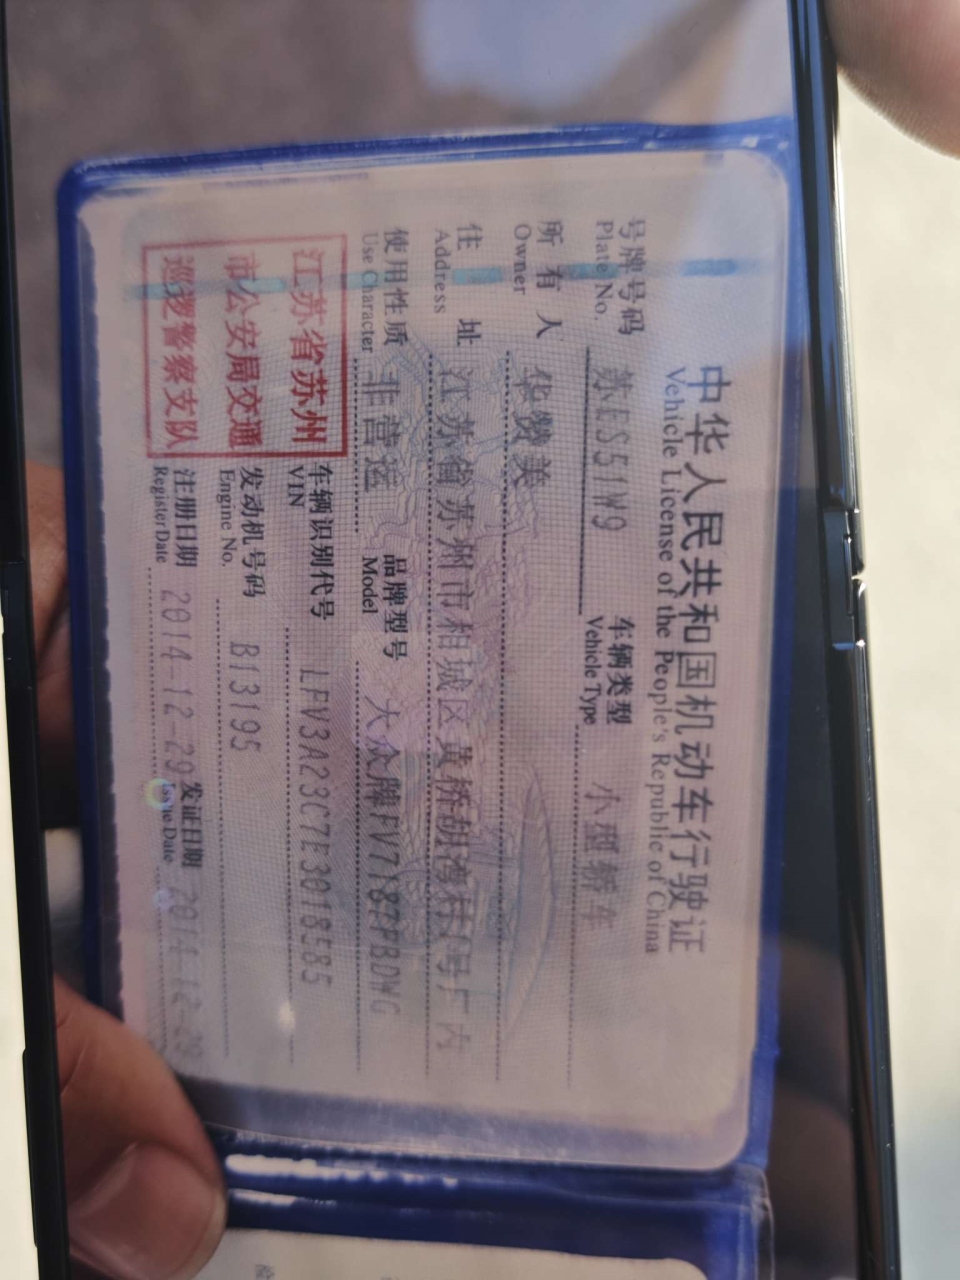 中华人民共和国机动车行驶证
Vehicle License of the People's Republic of China
号牌号码 苏ES51W9 车辆类型 小型轿车
Plate No. Vehicle Type
所有人 华赞美
Owner
住址 江苏省苏州市相城区黄桥胡湾村
Address
使用性质 非营运 品牌型号 大众牌FV7187FBDWG
Use Character Model
江苏省苏州
市公安局交通
巡逻警察支队
车辆识别代号 LFV3A23C7E3018585
VIN
发动机号码 B13195
Engine No.
注册日期 2014-12-29 发证日期 2014-12-29
Register Date Issue Date